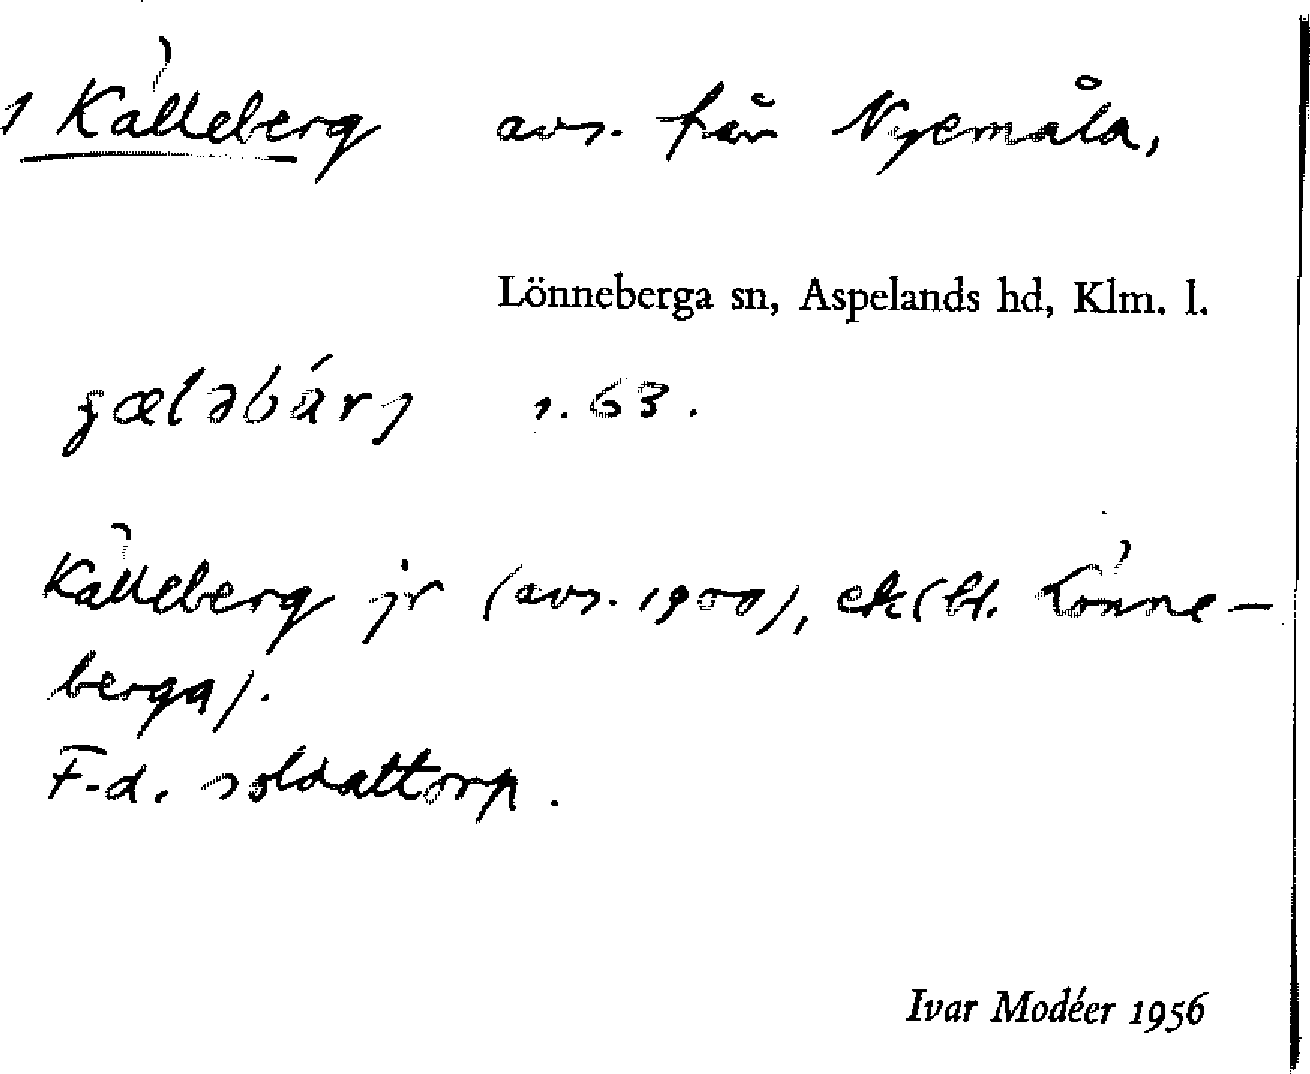 1 Källeberg avs. från Nyemåla,
Lönneberga sn, Aspelands hd, Klm. l.
s. 63.
Källeberg jr (avs. 1900), ek(bl. Lönne-
berga).
F.d. soldattorp.
Ivar Modéer 1956